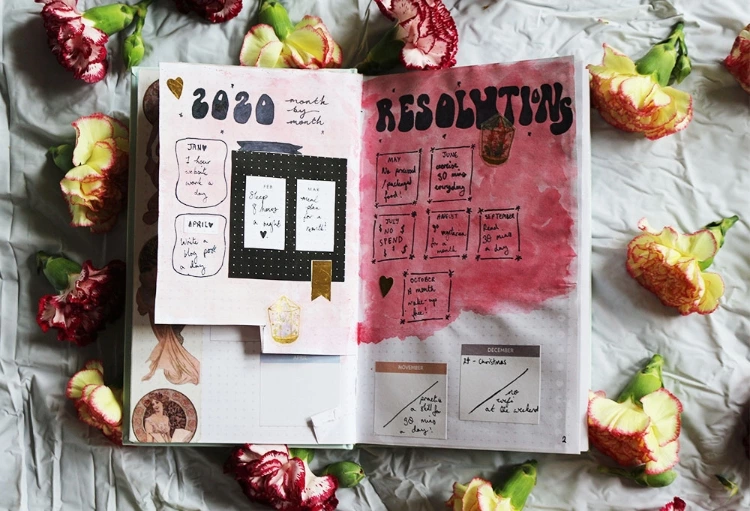 2020
month
by
month
RESOLUTIONS
JAN
1 hour
work a
day
FEB
Sleep
8 hours
a night
MAR
meal
for a
month!
APRIL
Write a
blog post
a day
MAY
No processed
/packaged
food!
JUNE
exercise
30 mins
everyday
JULY
$ NO $
SPEND
$ $ $
AUGUST
for a
month
SEPTEMBER
Read
30 mins
a day
OCTOBER
A month
make-up
free!
NOVEMBER
practice
a skill for
30 mins
a day!
DECEMBER
24 - Christmas
no
wifi
at the weekend
2